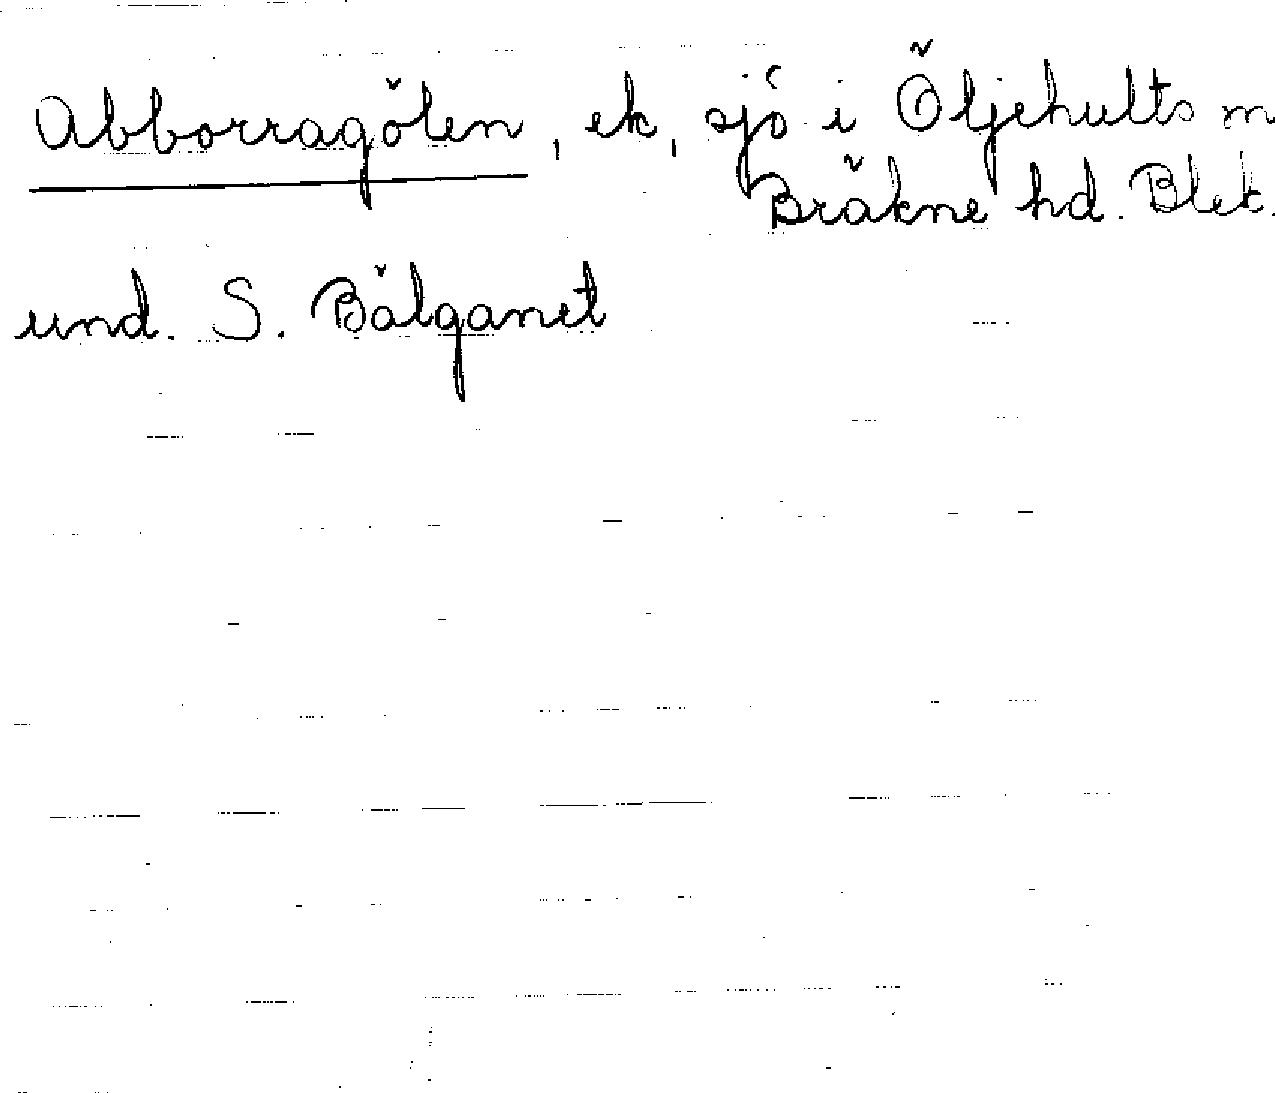 Abborragölen, ek, sjö i Öljehults
Bräkne hd. Blek.
und. S. Bälganet